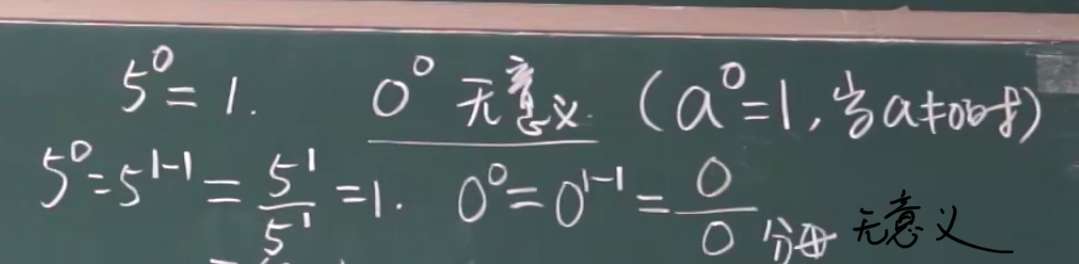 5⁰=1. 0⁰ 无意义. (a⁰=1,当a≠0时)
5⁰=5¹⁻¹=5¹/5¹=1. 0⁰=0¹⁻¹=0/0 分母 无意义